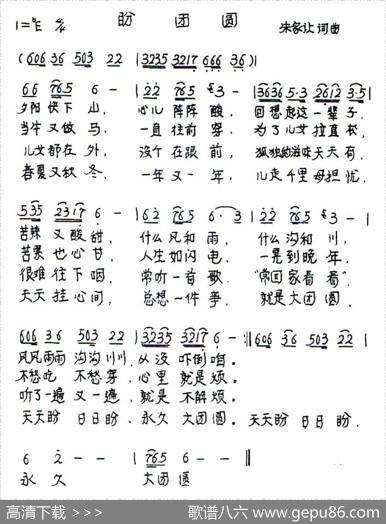 盼团圆
1=♭E 4/4 朱家让 词曲
(606 36 503 22 |3235 3217 666 36)|
66 765 6 - |22 765 #3 - |3636 5·3 2612 3·5|
夕阳快下山, 心儿阵阵酸, 回想起这一辈子,
当牛又做马, 一直往前奔, 为了儿女拉直校
儿女都在外, 没个在跟前, 孤独的滋味天天有,
春夏又秋冬, 一年又一年, 儿走千里母担忧,
535 2317 6 - |62 765 6·3 |22 765 #3 - |
苦辣又酸甜, 什么风和雨, 什么沟和川,
苦累也心甘, 人生如闪电, 一晃到晚年,
很难往下咽, 常听一首歌, "常回家看看",
天天挂心间, 总想一件事, 就是大团圆,
606 36 503 22 |3235 3217 6 - :|606 36 503 22 |
风风雨雨沟沟川川, 从没吓倒咱。
不愁吃 不愁穿, 心里就是烦。
听了一遍又一遍, 就是不解烦。
天天盼 日日盼, 永久大团圆。天天盼 日日盼,
6 2 - - |765 6 - - ‖
永久 大团圆
高清下载 >>> 歌谱八六 www.gepu86.com